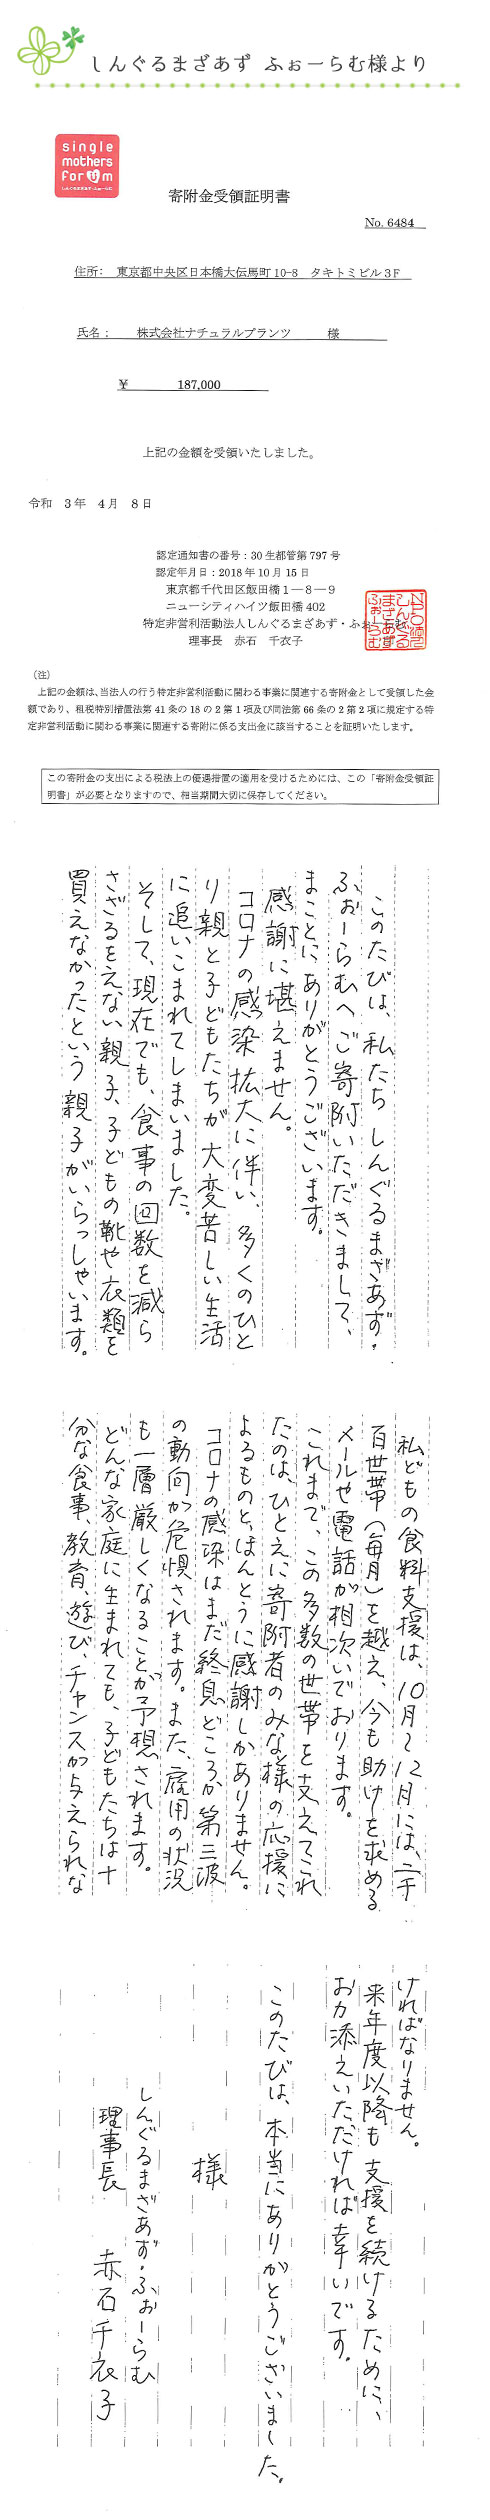 しんぐるまざあず ふぉーらむ様より
single
mothers
forum
しんぐるまざあず・ふぉーらむ
寄附金受領証明書
No. 6484
住所： 東京都中央区日本橋大伝馬町10-8 タキトミビル3F
氏名； 株式会社ナチュラルプランツ 様
¥ 187,000
上記の金額を受領いたしました。
令和 3年 4月 8日
認定通知書の番号：30生都管第797号
認定年月日：2018年10月15日
東京都千代田区飯田橋1―8―9
ニューシティハイツ飯田橋402
特定非営利活動法人しんぐるまざあず・ふぉーらむ
理事長 赤石 千衣子
NPO法人
しんぐる
まざあず
ふぉーらむ
（注）
上記の金額は、当法人の行う特定非営利活動に関わる事業に関連する寄附金として受領した金
額であり、租税特別措置法第41条の18の2第1項及び同法第66条の2第2項に規定する特
定非営利活動に関わる事業に関連する寄附に係る支出金に該当することを証明いたします。
この寄附金の支出による税法上の優遇措置の適用を受けるためには、この「寄附金受領証
明書」が必要となりますので、相当期間大切に保存してください。
このたびは、私たち しんぐるまざあず・
ふぉーらむへ ご寄附いただきまして、
まことにありがとうございます。
感謝に堪えません。
コロナの感染拡大に伴い、多くのひと
り親と子どもたちが 大変苦しい生活
に追いこまれてしまいました。
そして、現在でも、食事の回数を減ら
さざるをえない親子、子どもの靴や衣類を
買えなかったという親子がいらっしゃいます。
私どもの食料支援は、10月〜12月には、二千
百世帯（毎月）を越え、今も助けを求める
メールや電話が相次いでおります。
これまで、この多数の世帯を支えてこれ
たのは、ひとえに寄附者のみな様の応援に
よるものと、ほんとうに感謝しかありません。
コロナの感染はまだ終息どころか第三波
の動向が危惧されます。また、雇用の状況
も一層厳しくなることが予想されます。
どんな家庭に生まれても、子どもたちは十
分な食事、教育、遊び、チャンスが与えられな
ければなりません。
来年度以降も支援を続けるために、
お力添えいただければ幸いです。
このたびは、本当にありがとうございました。
様
しんぐるまざあず・ふぉーらむ
理事長 赤石千衣子